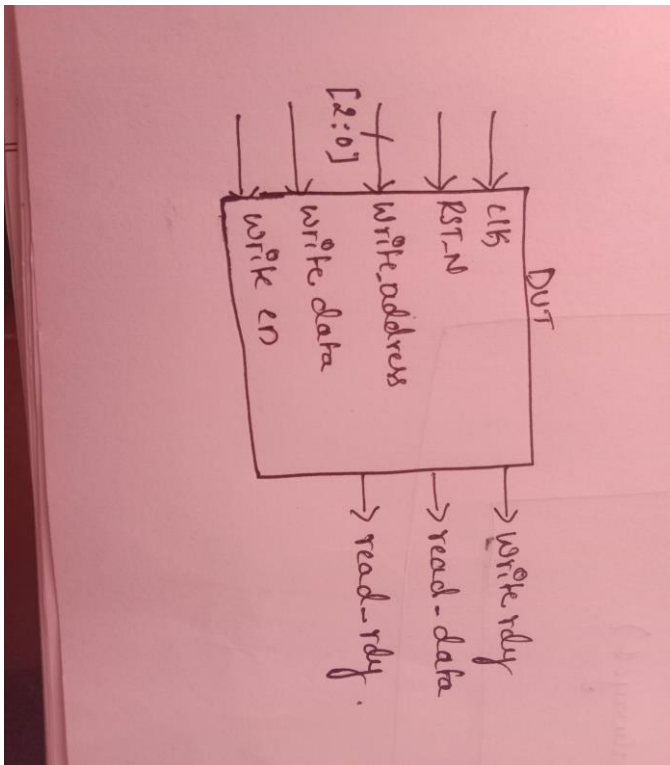 DUT
CLK
RST_N
[2:0]
write_address
write data
write en
write rdy
read_data
read_rdy.